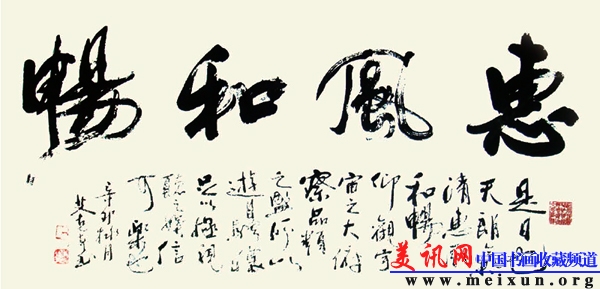 惠風和暢
是日也
天朗氣
清惠風
和暢
仰觀宇
宙之大俯
察品類
之盛所以
遊目騁懷
足以極視
聽之娛信
可樂也
辛卯秋月
美讯网 中国书画收藏频道
www.meixun.net